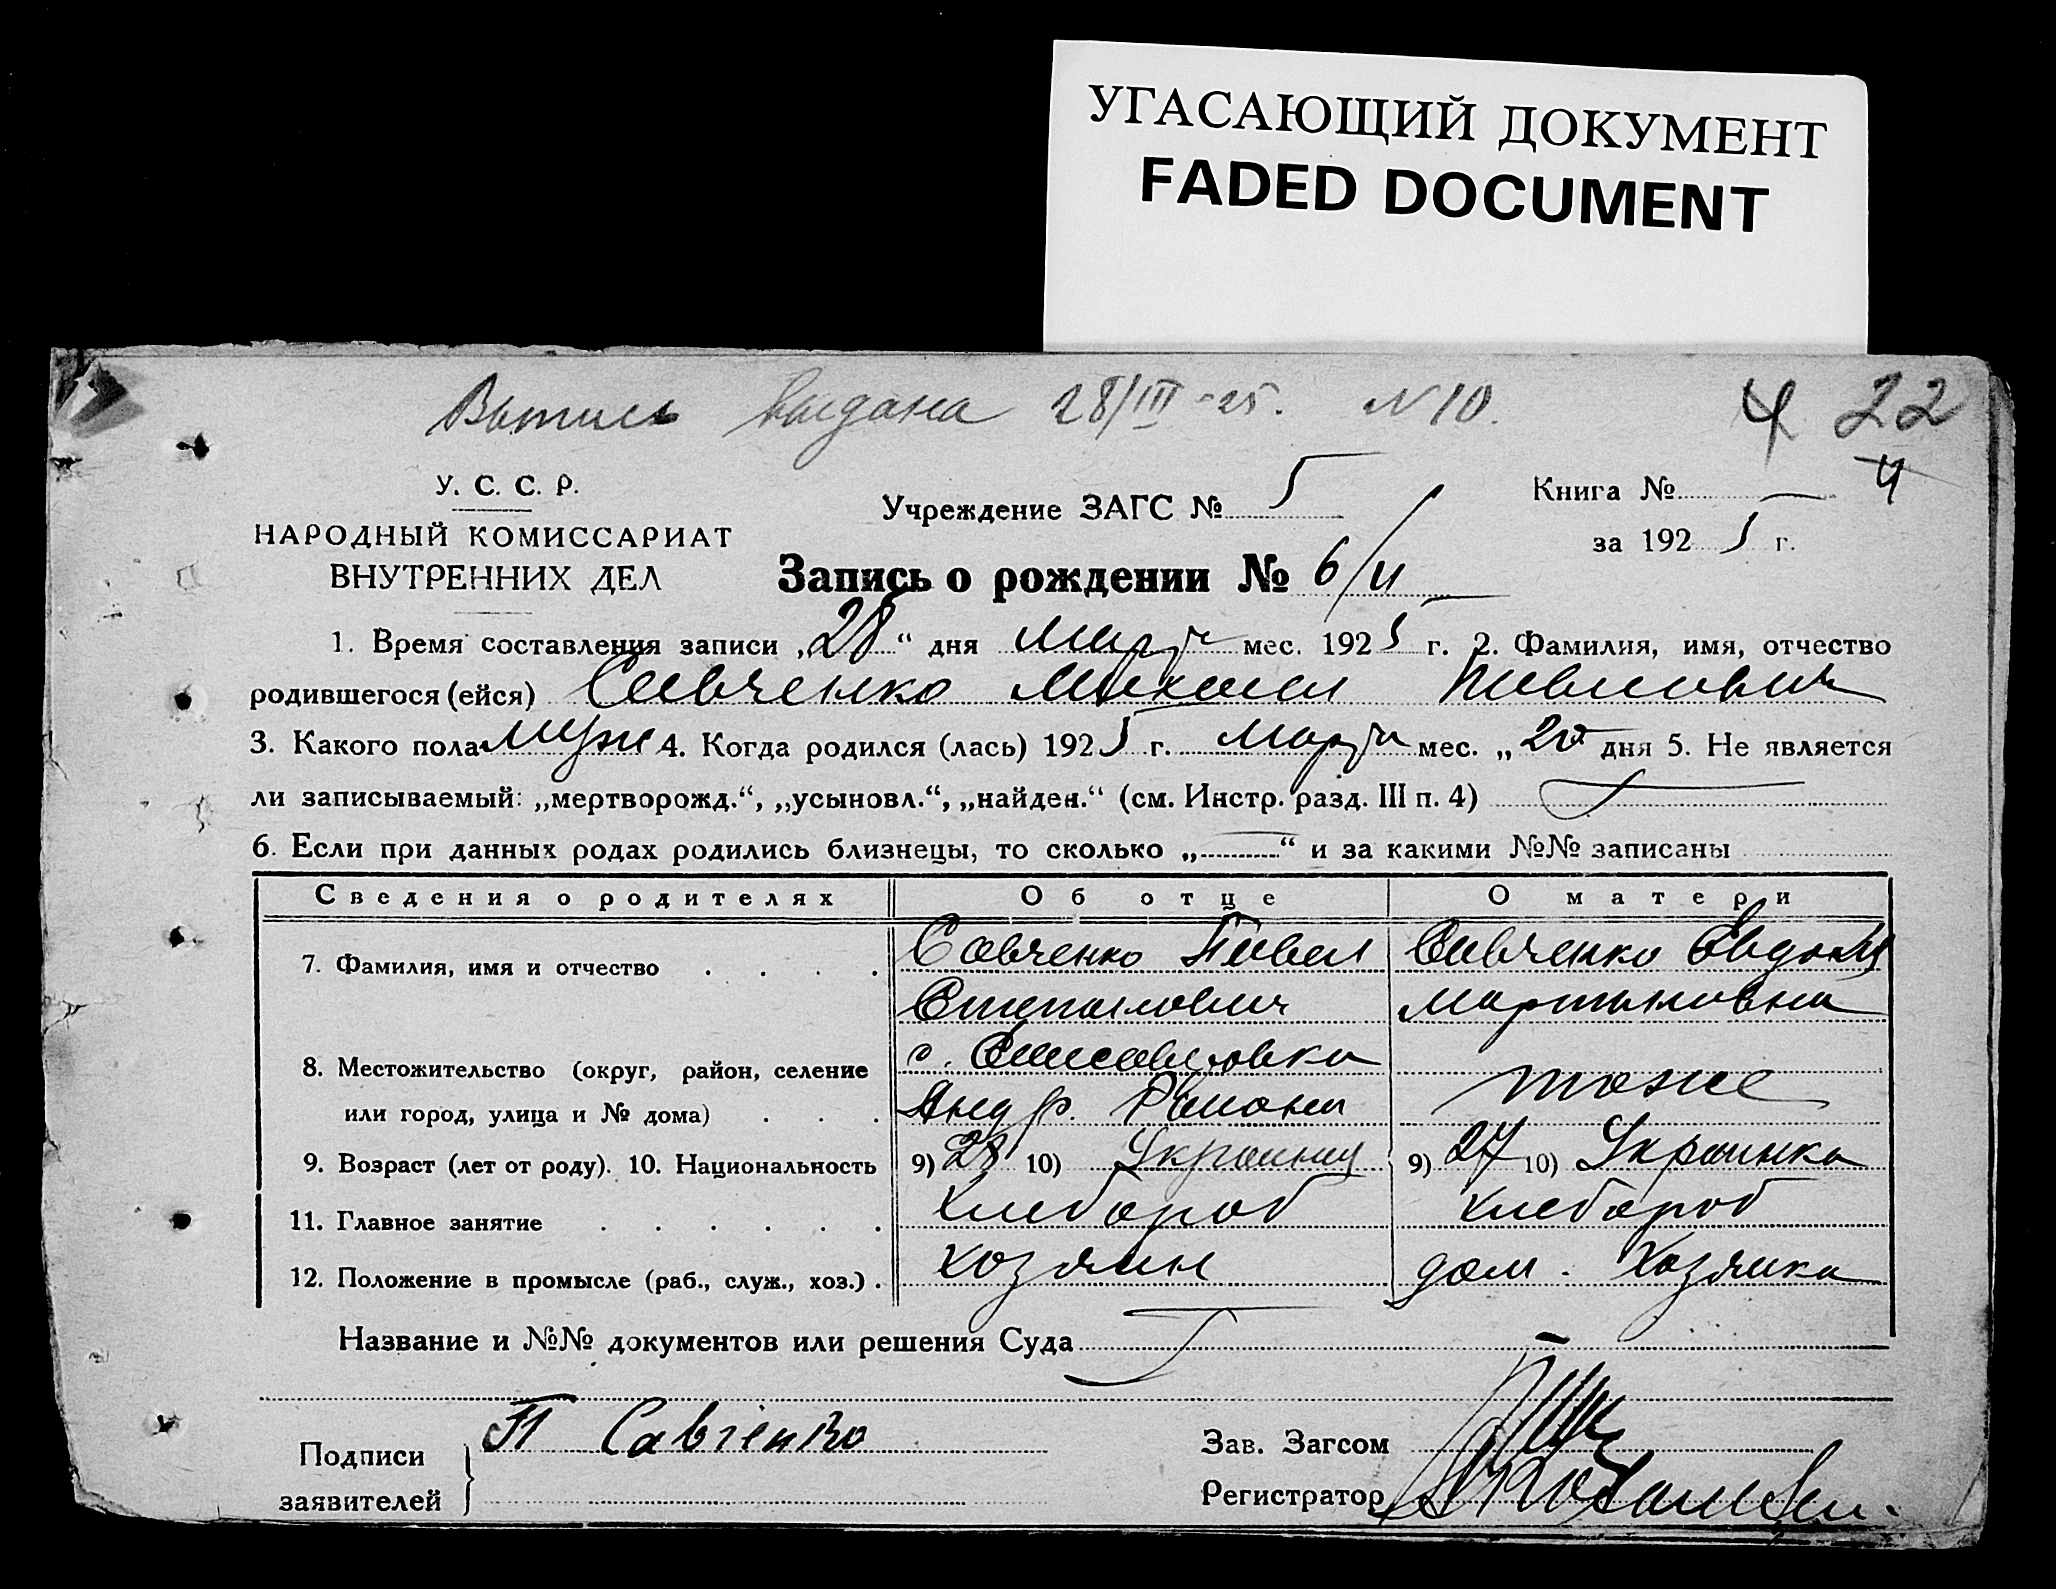 УГАСАЮЩИЙ ДОКУМЕНТ
FADED DOCUMENT
Выпись выдана 28/III-25. N 10. 4 22
4
У. С. С. Р.
НАРОДНЫЙ КОМИССАРИАТ
ВНУТРЕННИХ ДЕЛ
Учреждение ЗАГС № 5
Книга №
за 1925 г.
Запись о рождении № 6/и
1. Время составления записи „28“ дня Марта мес. 1925 г. 2. Фамилия, имя, отчество
родившегося (ейся) Савченко Михаил Павлович
3. Какого пола муж 4. Когда родился (лась) 1925 г. Марта мес. „20 дня 5. Не является
ли записываемый: „мертворожд.“, „усыновл.“, „найден.“ (см. Инстр. разд. III п. 4)
6. Если при данных родах родились близнецы, то сколько „—“ и за какими №№ записаны
Сведения о родителях Об отце О матери
7. Фамилия, имя и отчество . . . . Савченко Павел Савченко Евдокия
Степанович Мартыновна
8. Местожительство (округ, район, селение с. Елисаветовка
или город, улица и № дома) . . . Андр. Района тоже
9. Возраст (лет от роду). 10. Национальность 9) 28 10) Украинец 9) 27 10) Украинка
11. Главное занятие . . . . . . Хлебороб Хлебороб
12. Положение в промысле (раб., служ., хоз.) . хозяин дом. Хозяйка
Название и №№ документов или решения Суда
Подписи
заявителей
П Савченко
Зав. Загсом
Регистратор